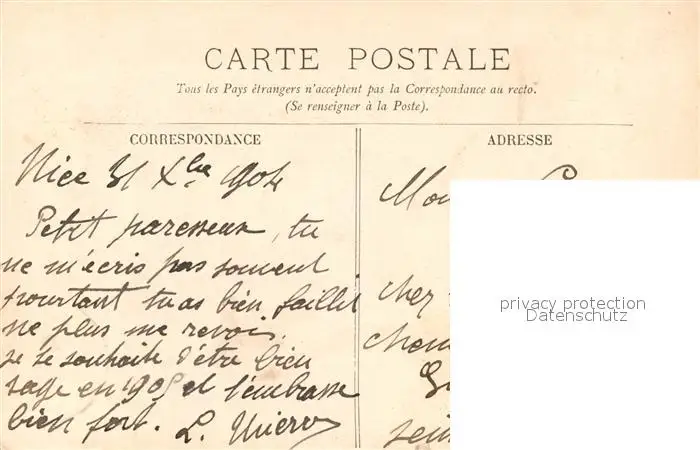 CARTE POSTALE
Tous les Pays étrangers n'acceptent pas la Correspondance au recto.
(Se renseigner à la Poste).
CORRESPONDANCE
ADRESSE
Nice 31 Xbre 1904
Petit paresseux, tu
ne m'écris pas souvent
pourtant tu as bien failli
ne plus me revoir,
je te souhaite d'être bien
sage en 1905 et t'embrasse
bien fort. L.
chez
privacy protection
Datenschutz